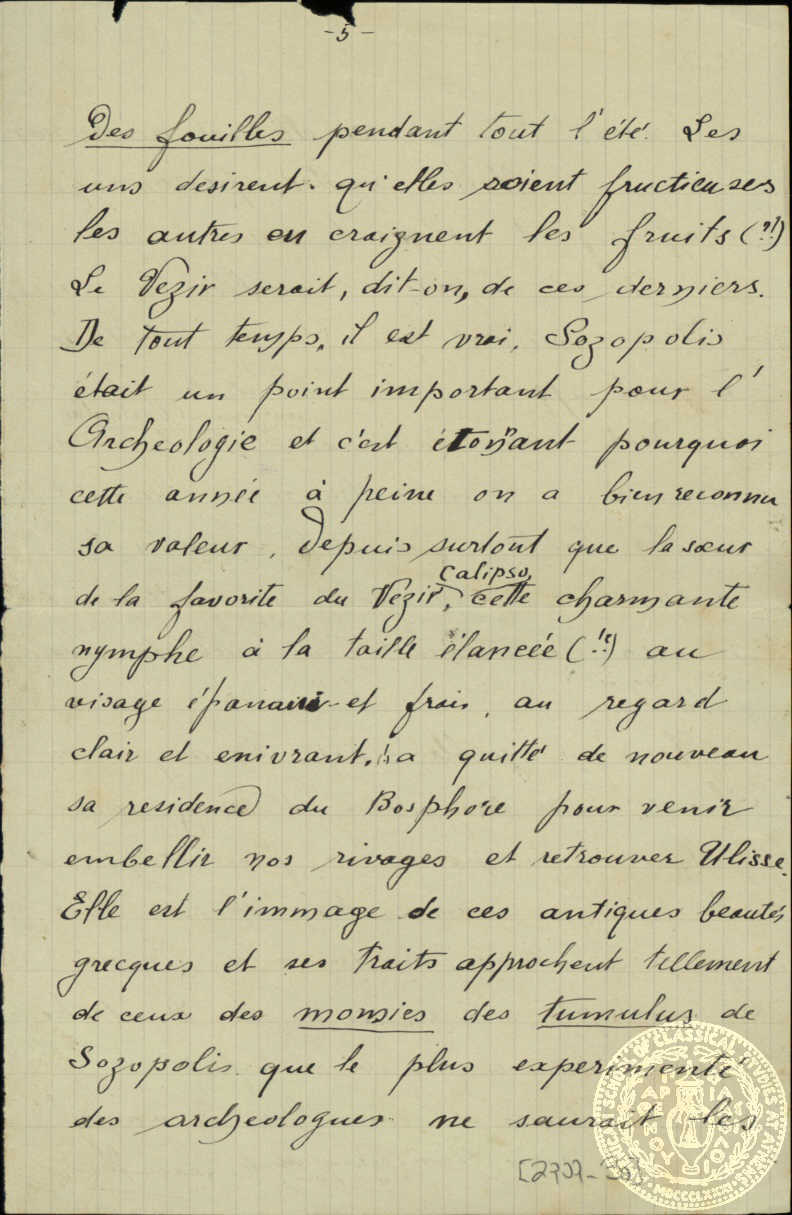 - 5 -
Des fouilles pendant tout l'été. Les
uns desirent qu'elles soient fructieuses
les autres en craignent les fruits (?!)
Le Vezir serait, dit-on, de ces derniers.
De tout temps, il est vrai, Sozopolis
était un point important pour l'
Archeologie et c'est étonant pourquoi
cette année à peine on a bien reconnu
sa valeur. Depuis surtout que la sœur
Calipso,
de la favorite du Vezir, cette charmante
nymphe à la taille élancée (!?) au
visage épanoui et frais, au regard
clair et enivrant, a quitté de nouveau
sa residence du Bosphore pour venir
embellir nos rivages et retrouver Ulisse.
Elle est l'immage de ces antiques beautés
grecques et ses traits approchent tellement
de ceux des momies des tumulus de
Sozopolis que le plus experimenté
des archeologues ne saurait les
[2707-36]
AMERICAN SCHOOL OF CLASSICAL STUDIES AT ATHENS
MDCCCLXXXI